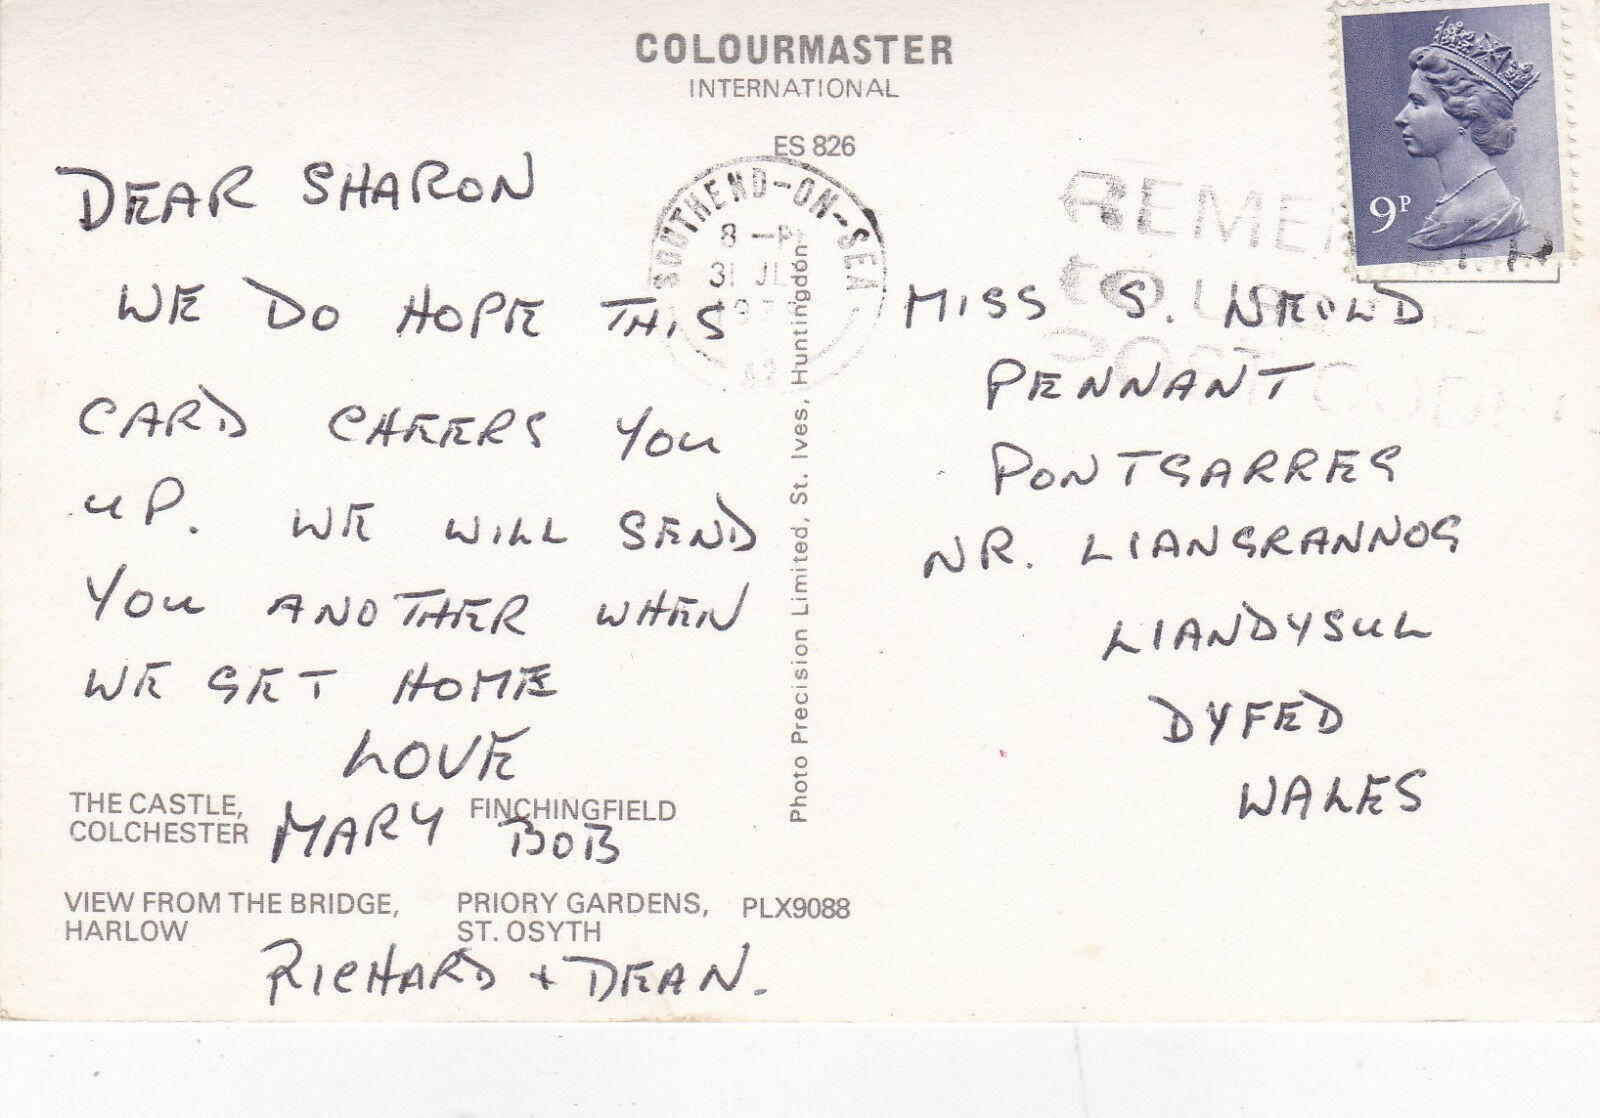 COLOURMASTER
INTERNATIONAL
ES 826
SOUTHEND-ON-SEA
8 -P
31 JL
197
A2
REME
to
POST CODE
9P
DEAR SHARON
WE DO HOPE THIS
CARD CHEERS YOU
UP. WE WILL SEND
YOU ANOTHER WHEN
WE GET HOME
LOVE
MARY BOB
RICHARD + DEAN.
THE CASTLE,
COLCHESTER
FINCHINGFIELD
VIEW FROM THE BRIDGE,
HARLOW
PRIORY GARDENS,
ST. OSYTH
PLX9088
Photo Precision Limited, St. Ives, Huntingdon
MISS S. NEILD
PENNANT
PONTGARREG
NR. LLANGRANNOG
LLANDYSUL
DYFED
WALES